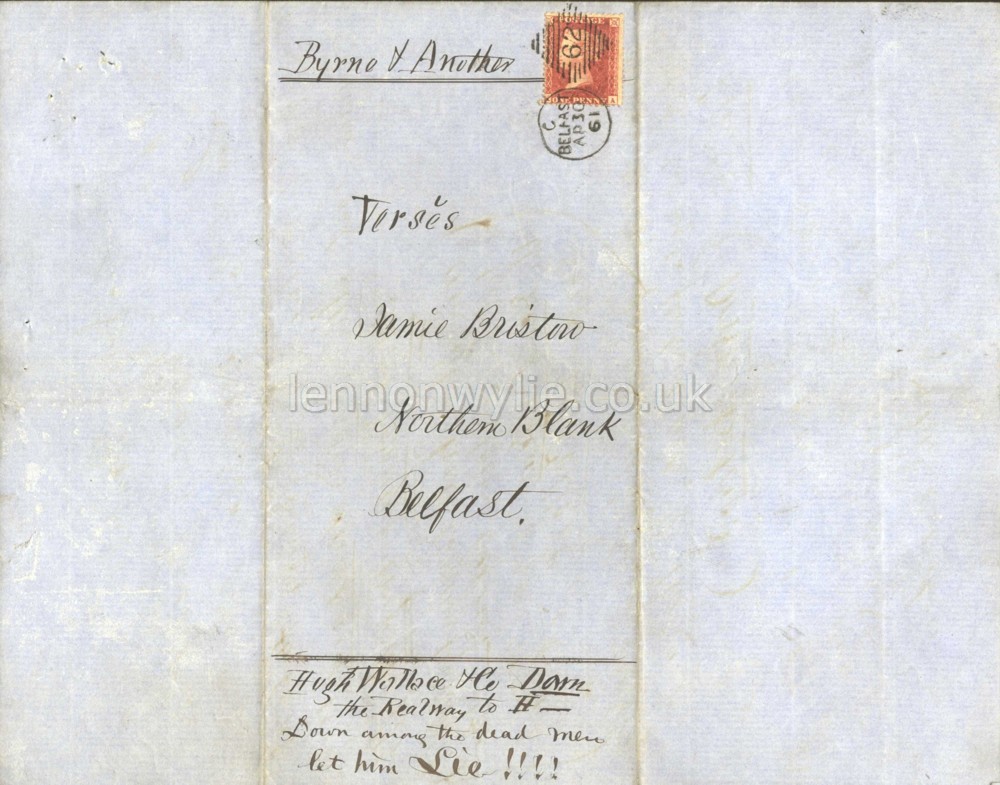 Byrne & Another
62
ONE PENNY
C
BELFAST
AP 30
61
Versĕs
Jamie Bristow
lennonwylie.co.uk
Northern Blank
Belfast.
Hugh Wallace & Co Down
the Realway to H—
Down among the dead men
let him Lie !!!!